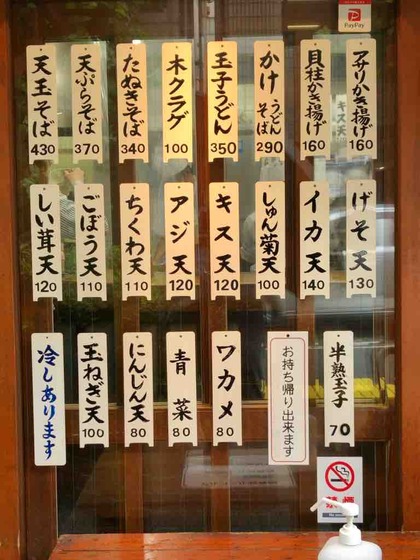 PayPay
アサリかき揚げ
160
貝柱かき揚げ
160
かけ うどん そば
290
玉子うどん
350
木クラゲ
100
たぬきそば
340
天ぷらそば
370
天玉そば
430
げそ天
130
イカ天
140
しゅん菊天
100
キス天
120
アジ天
120
ちくわ天
110
ごぼう天
110
しい茸天
120
半熟玉子
70
お持ち帰り出来ます
ワカメ
80
青菜
80
にんじん天
80
玉ねぎ天
100
冷しあります
禁煙